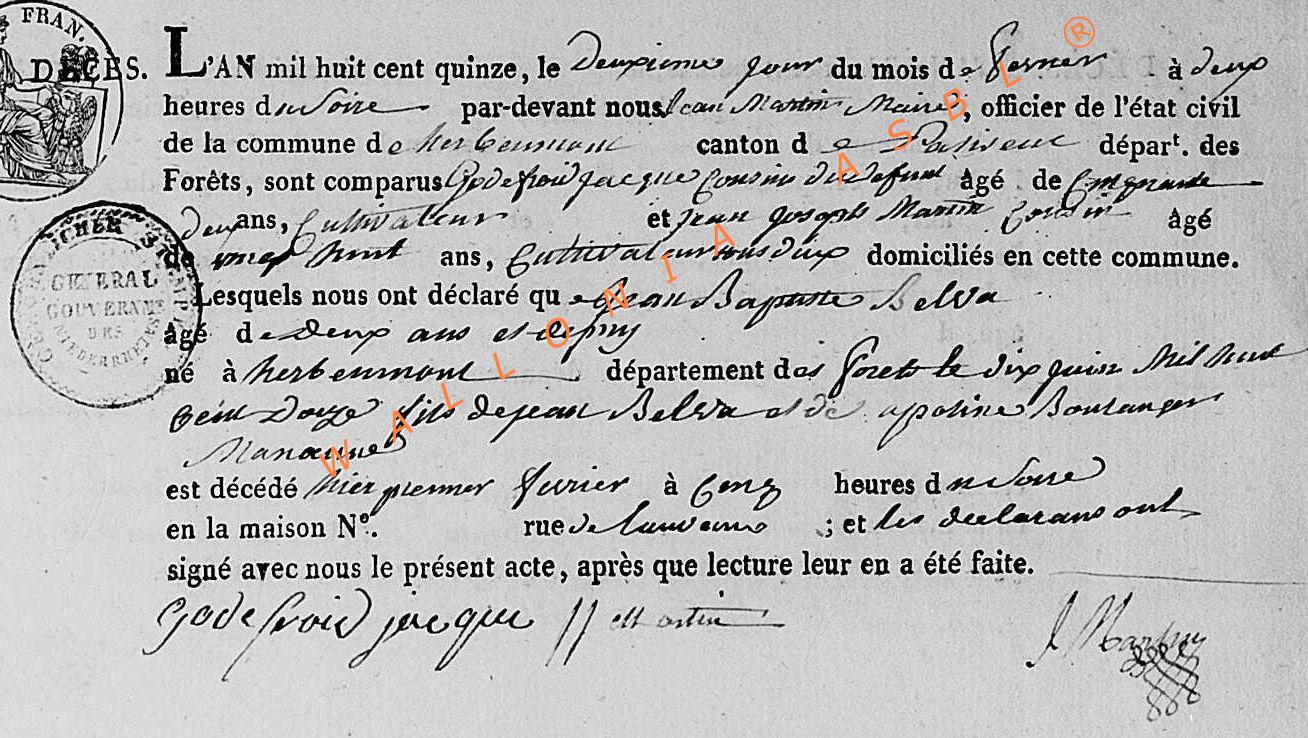 FRAN.
DÉCES.
L'AN mil huit cent quinze, le deuxieme jour du mois de fevrier à deux
heures du Soire par-devant nous Jean Martin Maire, officier de l'état civil
de la commune de herbeumont canton de Paliseul épart. des
Forêts, sont comparus Godefroid jacque Cousin du defunt âgé de Cinquante
deux ans, Cultivateur et jean joseph Martin Cousin âgé
de huit ans, Cultivateur tous deux domiciliés en cette commune.
Lesquels nous ont déclaré que jean Baptiste Belva
âgé de deux ans et demy
né à herbeumont département des forets le dix juin Mil huit
cent Douze fils de jean Belva et de apoline Boulanger
Manoeuvre
est décédé hier premier fevrier à Cinq heures du Soire
en la maison N°. rue de ; et les declarans ont
signé avec nous le présent acte, après que lecture leur en a été faite.
godefroid jacque JJ Martin J Martin
GENERAL
GOUVERNEMT
DES
NIEDERRHEINS
WALLONIA ASBL ®